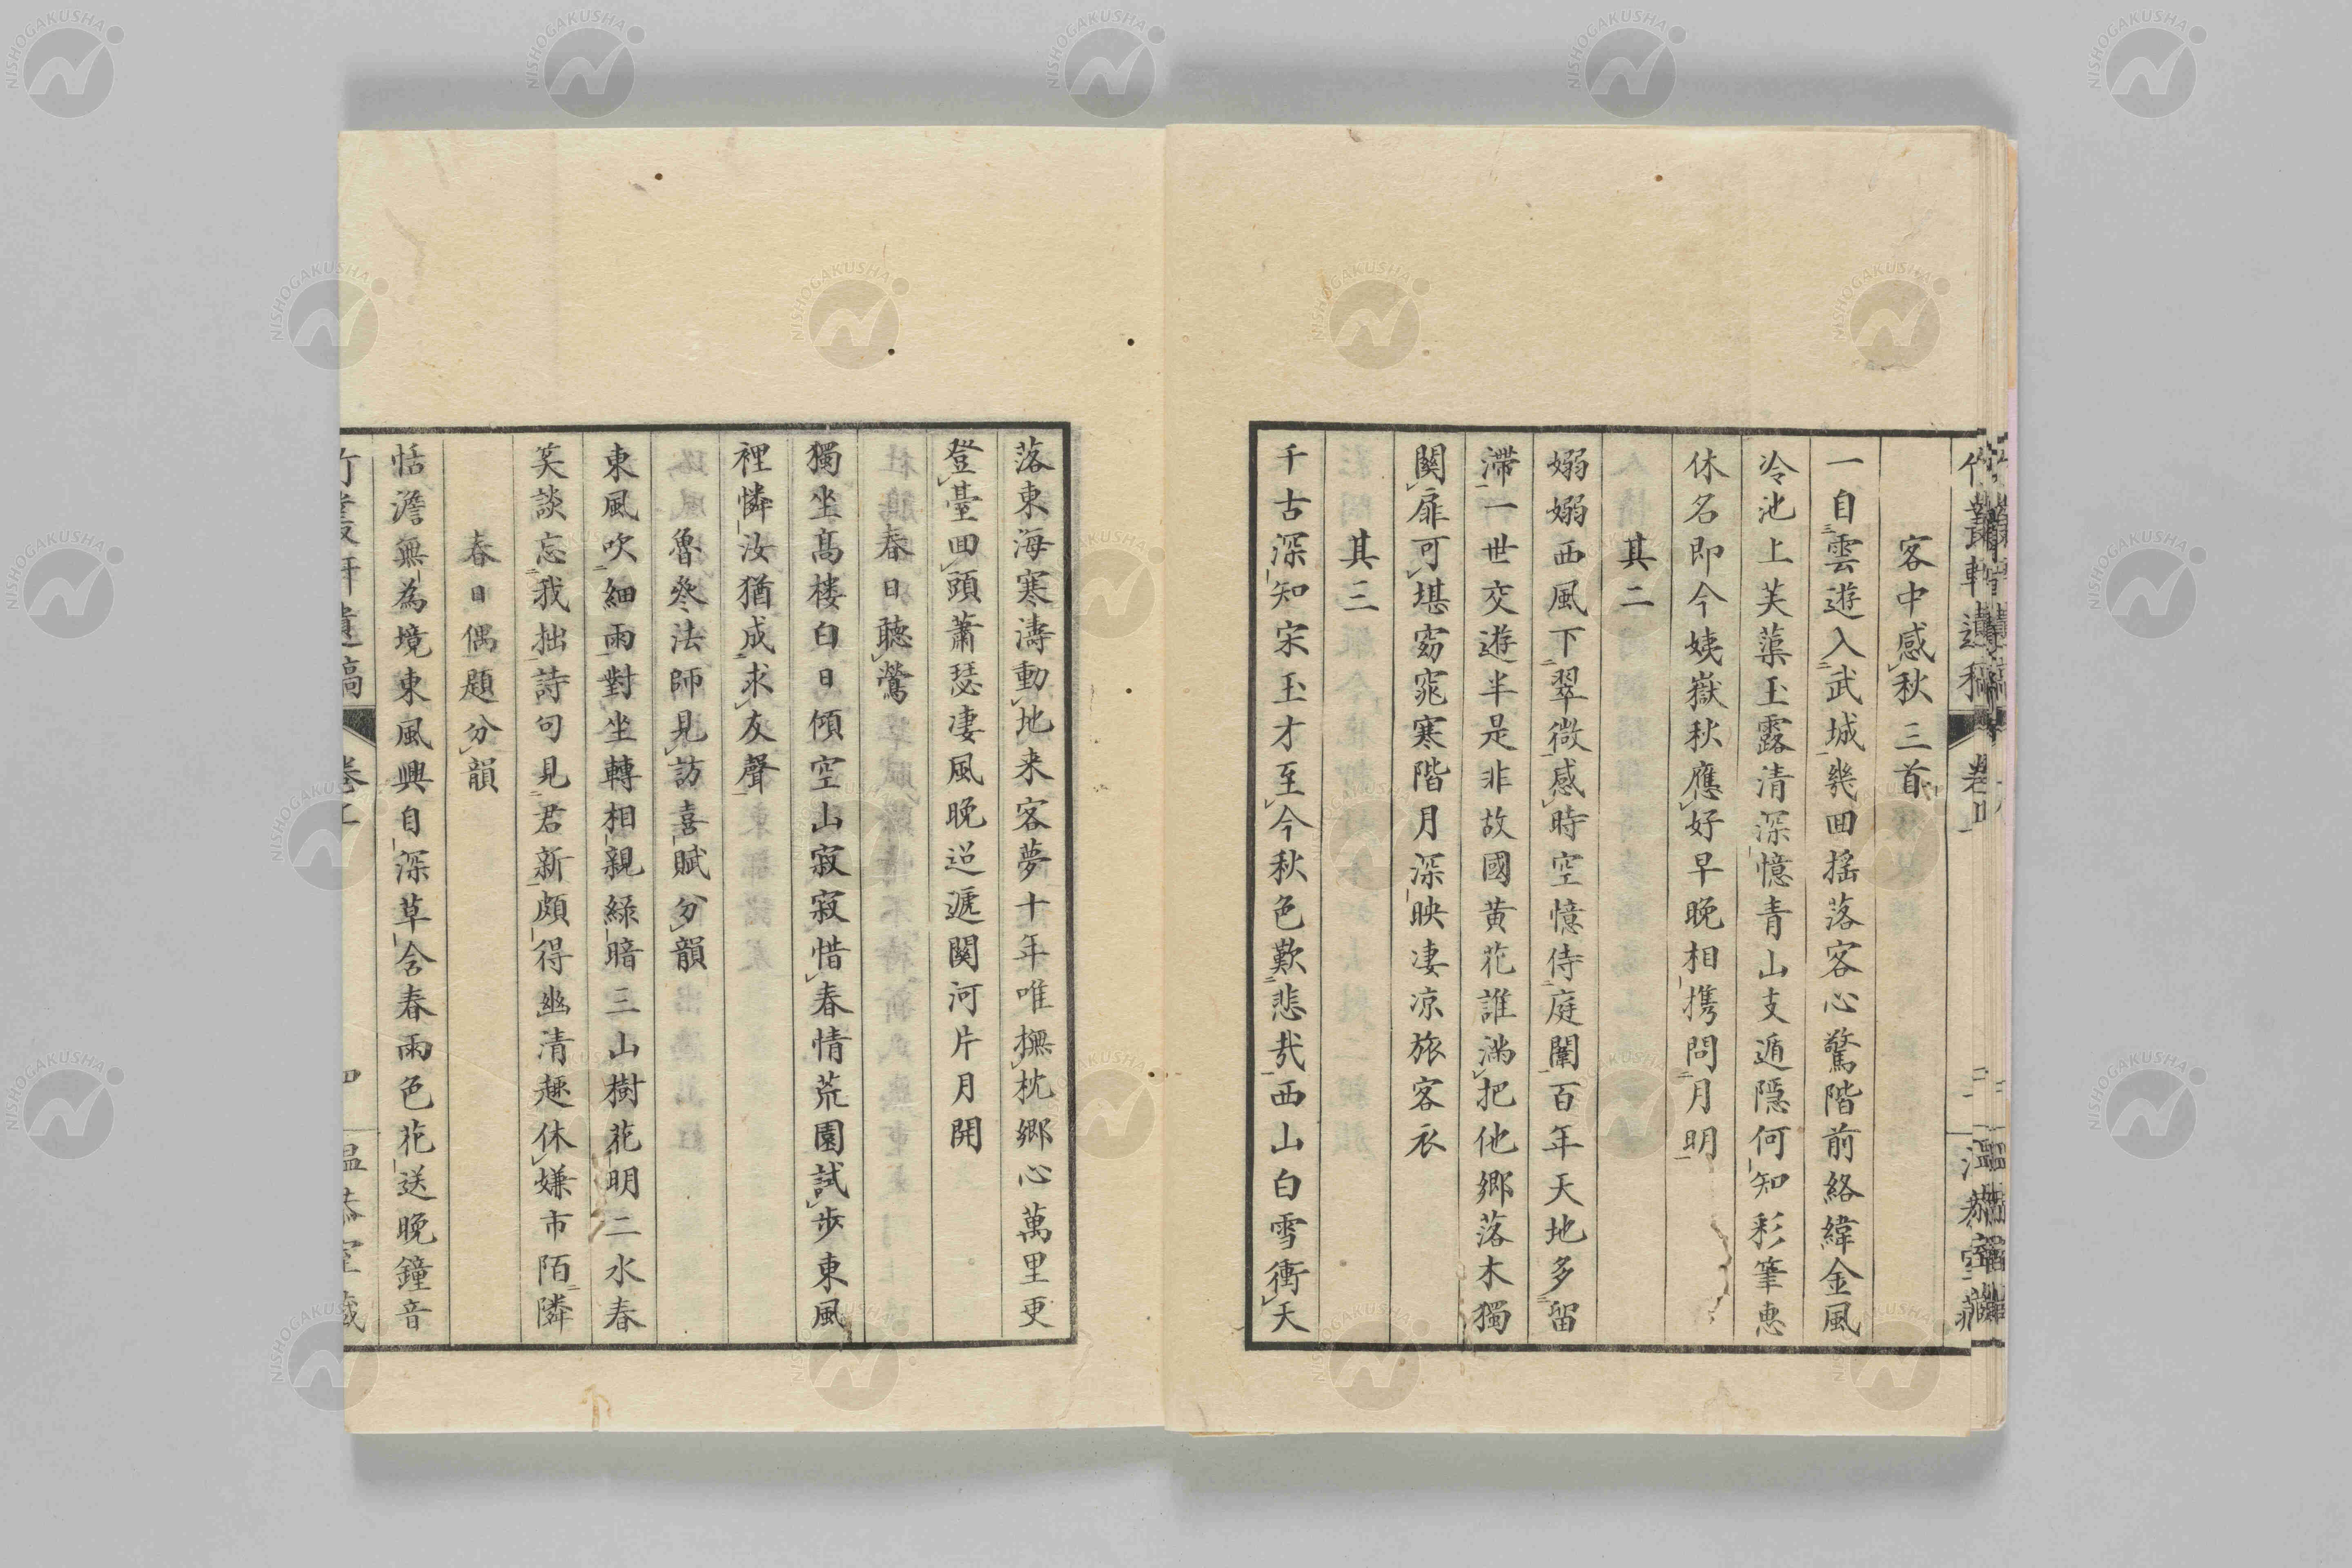 客中感秋三首
一自雲遊入武城幾回揺落客心驚階前絡緯金風
冷池上芙蕖玉露清深憶青山支遁隱何知彩筆惠
休名即今姨嶽秋應好早晚相携問月明
其二
嫋嫋西風下翠微感時空憶侍庭闈百年天地多留
滯一世交遊半是非故國黄花誰滿把他郷落木獨
関扉可堪窈窕寒階月深映凄凉旅客衣
其三
千古深知宋玉才至今秋色歎悲哉西山白雪衝天
落東海寒濤動地来客夢十年唯撫枕郷心萬里更
登臺回頭蕭瑟凄風晚迢遞関河片月開
春日聽鶯
獨坐髙楼白日傾空山寂寂惜春情荒園試歩東風
裡憐汝猶成求友聲
魯參法師見訪喜賦分韻
東風吹細雨對坐轉相親綠暗三山樹花明二水春
笑談忘我拙詩句見君新頗得幽清趣休嫌市陌隣
春日偶題分韻
恬澹無為境東風興自深草含春雨色花送晚鐘音